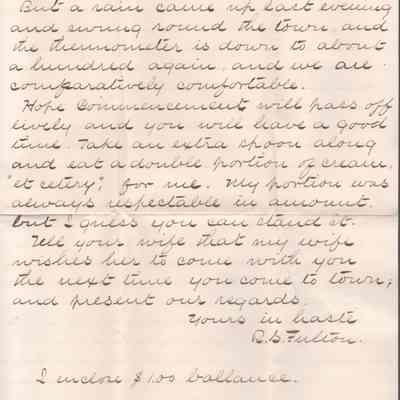 But a rain came up last evening
and swung round the town and
the thermometer is down to about
a hundred again, and we are
comparatively comfortable.
Hope Commencement will pass off
lively and you will have a good
time. Take an extra spoon along
and eat a double portion of cream,
"et cetery", for me. My portion was
always respectable in amount,
but I guess you can stand it.
Tell your wife that my wife
wishes her to come with you
the next time you come to town,
and present our regards.
Yours in haste
R. S. Fulton.
I enclose $1.00 ballance.